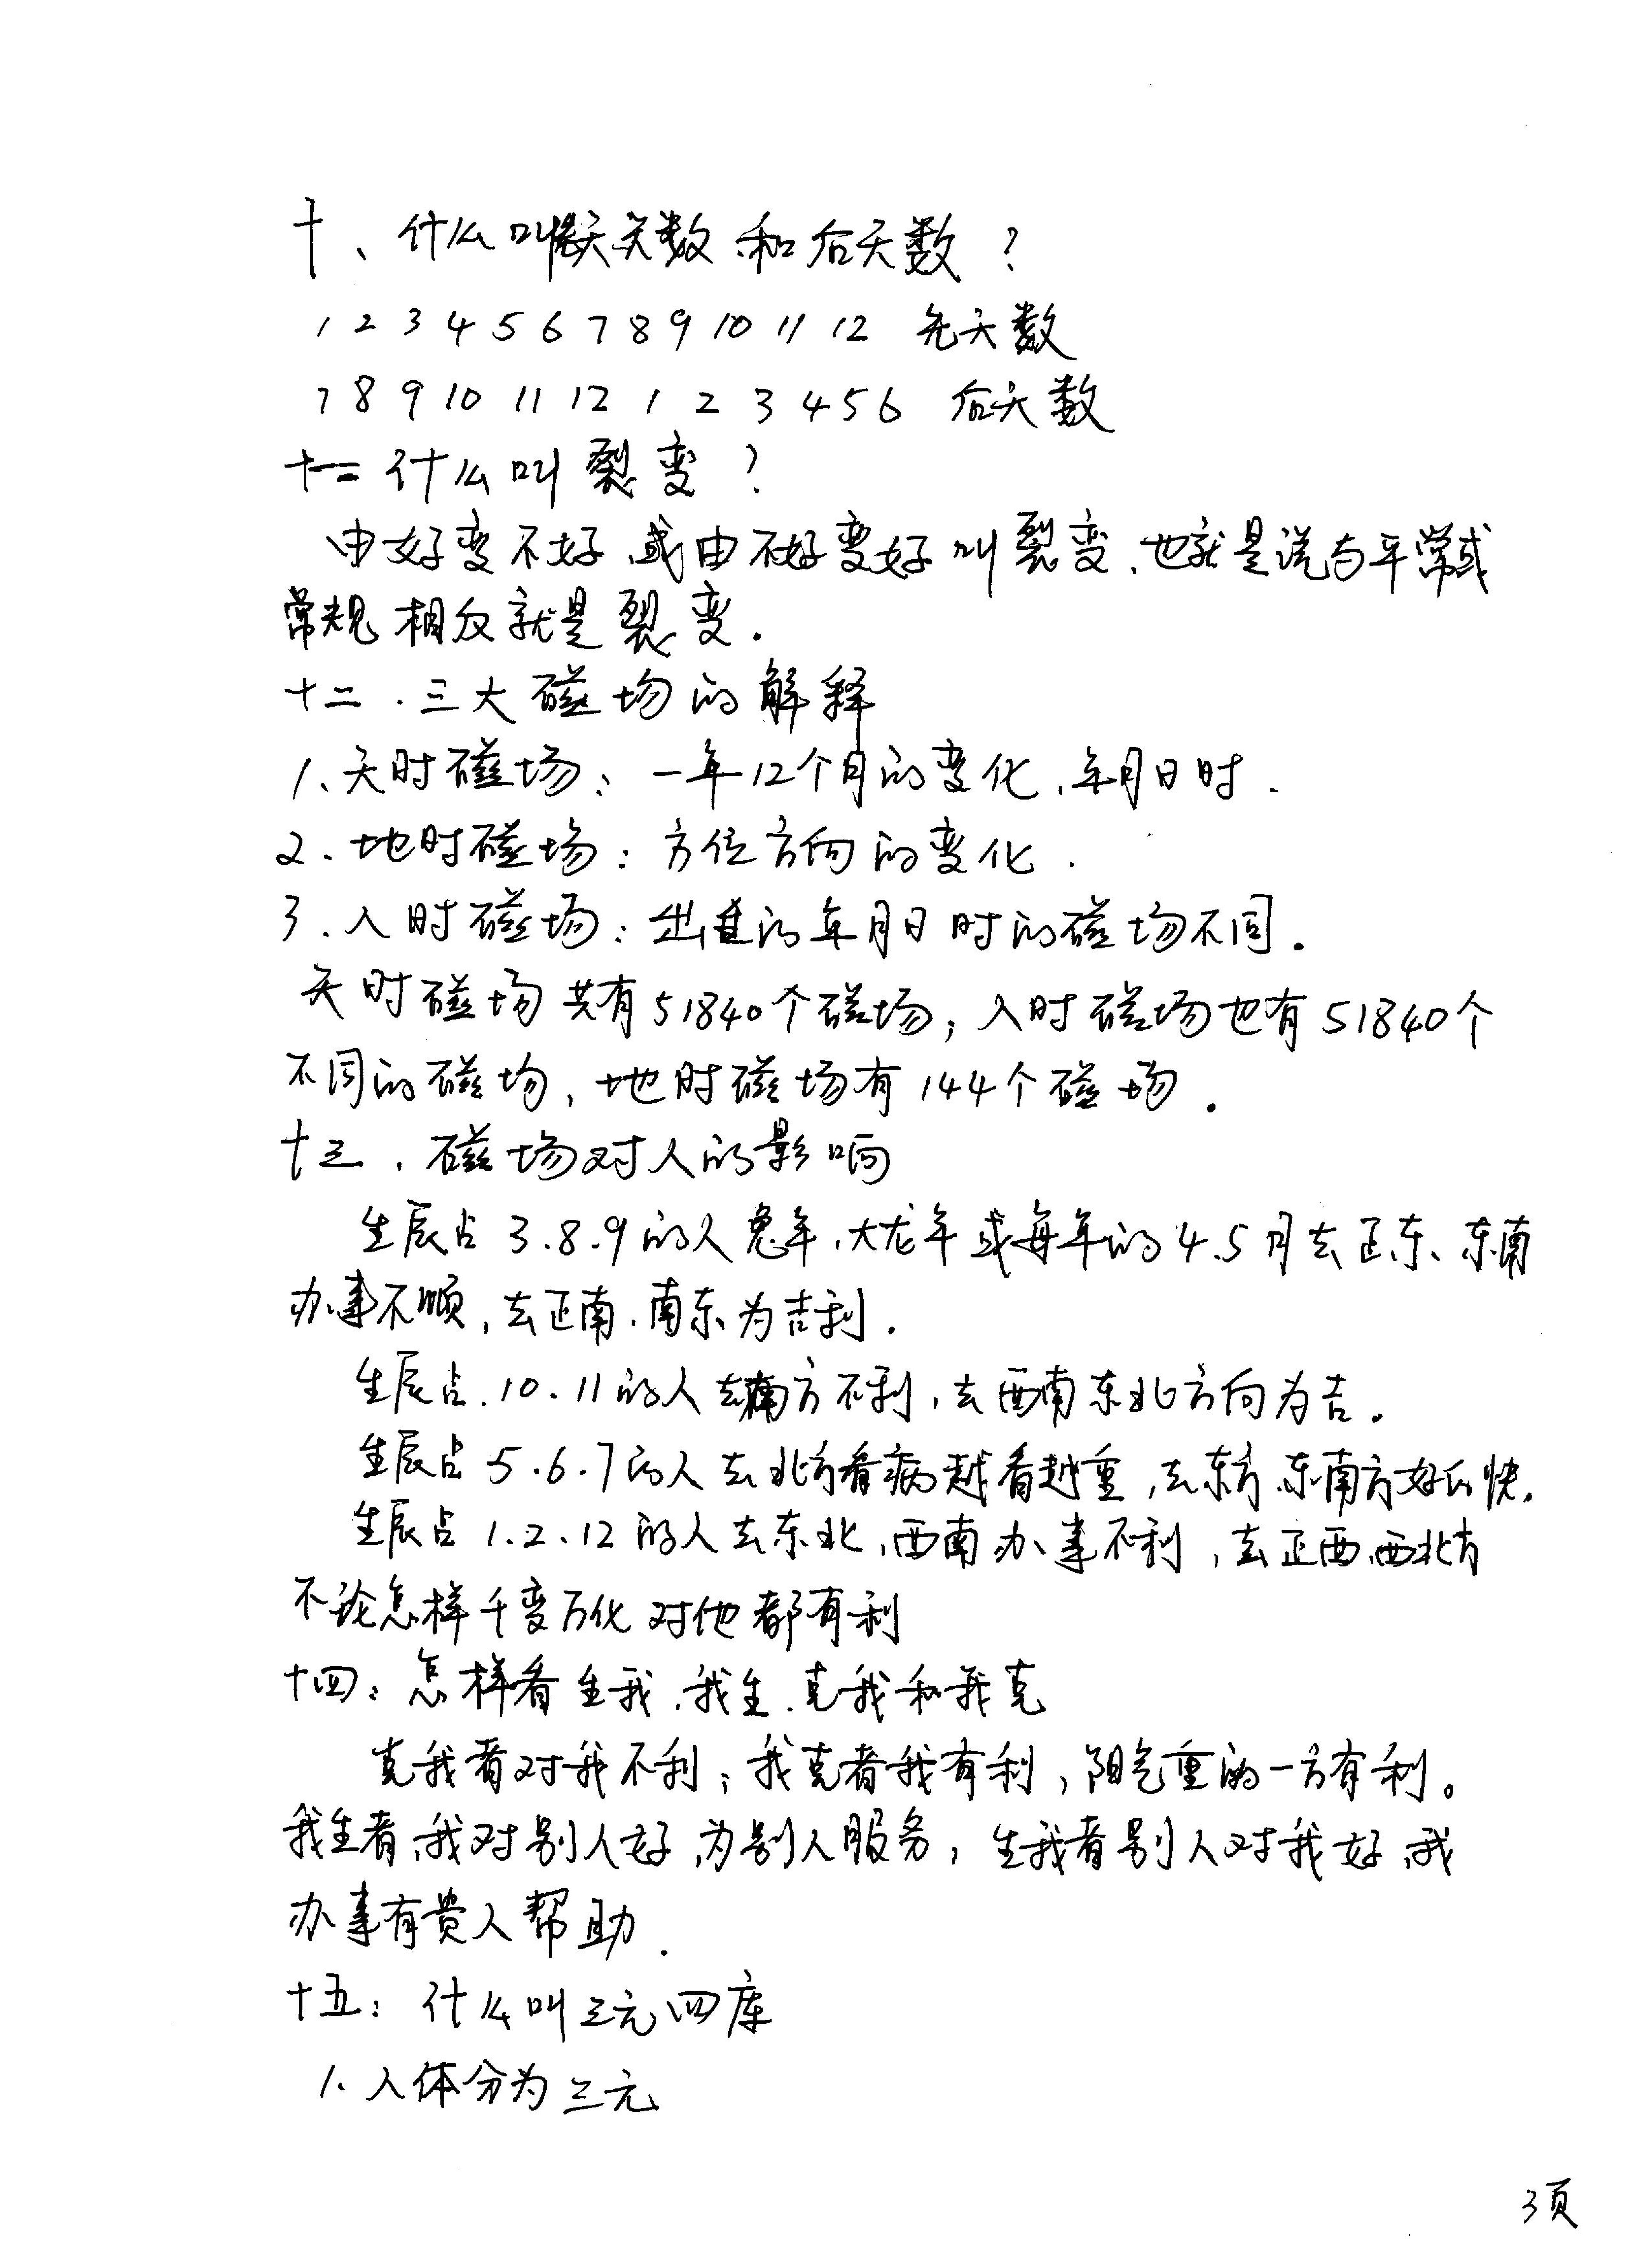 十、什么叫先天数和后天数？
1 2 3 4 5 6 7 8 9 10 11 12 先天数
7 8 9 10 11 12 1 2 3 4 5 6 后天数
十一 什么叫裂变？
由好变不好、或由不好变好叫裂变、也就是说与平常或
常规相反就是裂变.
十二.三大磁场的解释
1、天时磁场：一年12个月的变化、年月日时.
2.地时磁场：方位方向的变化.
3.人时磁场：出生的年月日时的磁场不同.
天时磁场共有51840个磁场，人时磁场也有51840个
不同的磁场，地时磁场有144个磁场.
十三.磁场对人的影响
生辰占3.8.9的人兔年、大龙年或每年的4.5月去正东、东南
办事不顺，去正南.南东为吉利.
生辰占.10.11的人去南方不利，去西南东北方向为吉.
生辰占5.6.7的人去北方看病越看越重，去东方、东南方好的快.
生辰占1.2.12的人去东北、西南办事不利，去正西、西北方
不论怎样千变万化对他都有利
十四：怎样看生我、我生.克我和我克
克我者对我不利；我克者我有利，阳气重的一方有利。
我生者、我对别人好、为别人服务，生我者别人对我好、我
办事有贵人帮助.
十五：什么叫三元四库
1.人体分为三元
3页